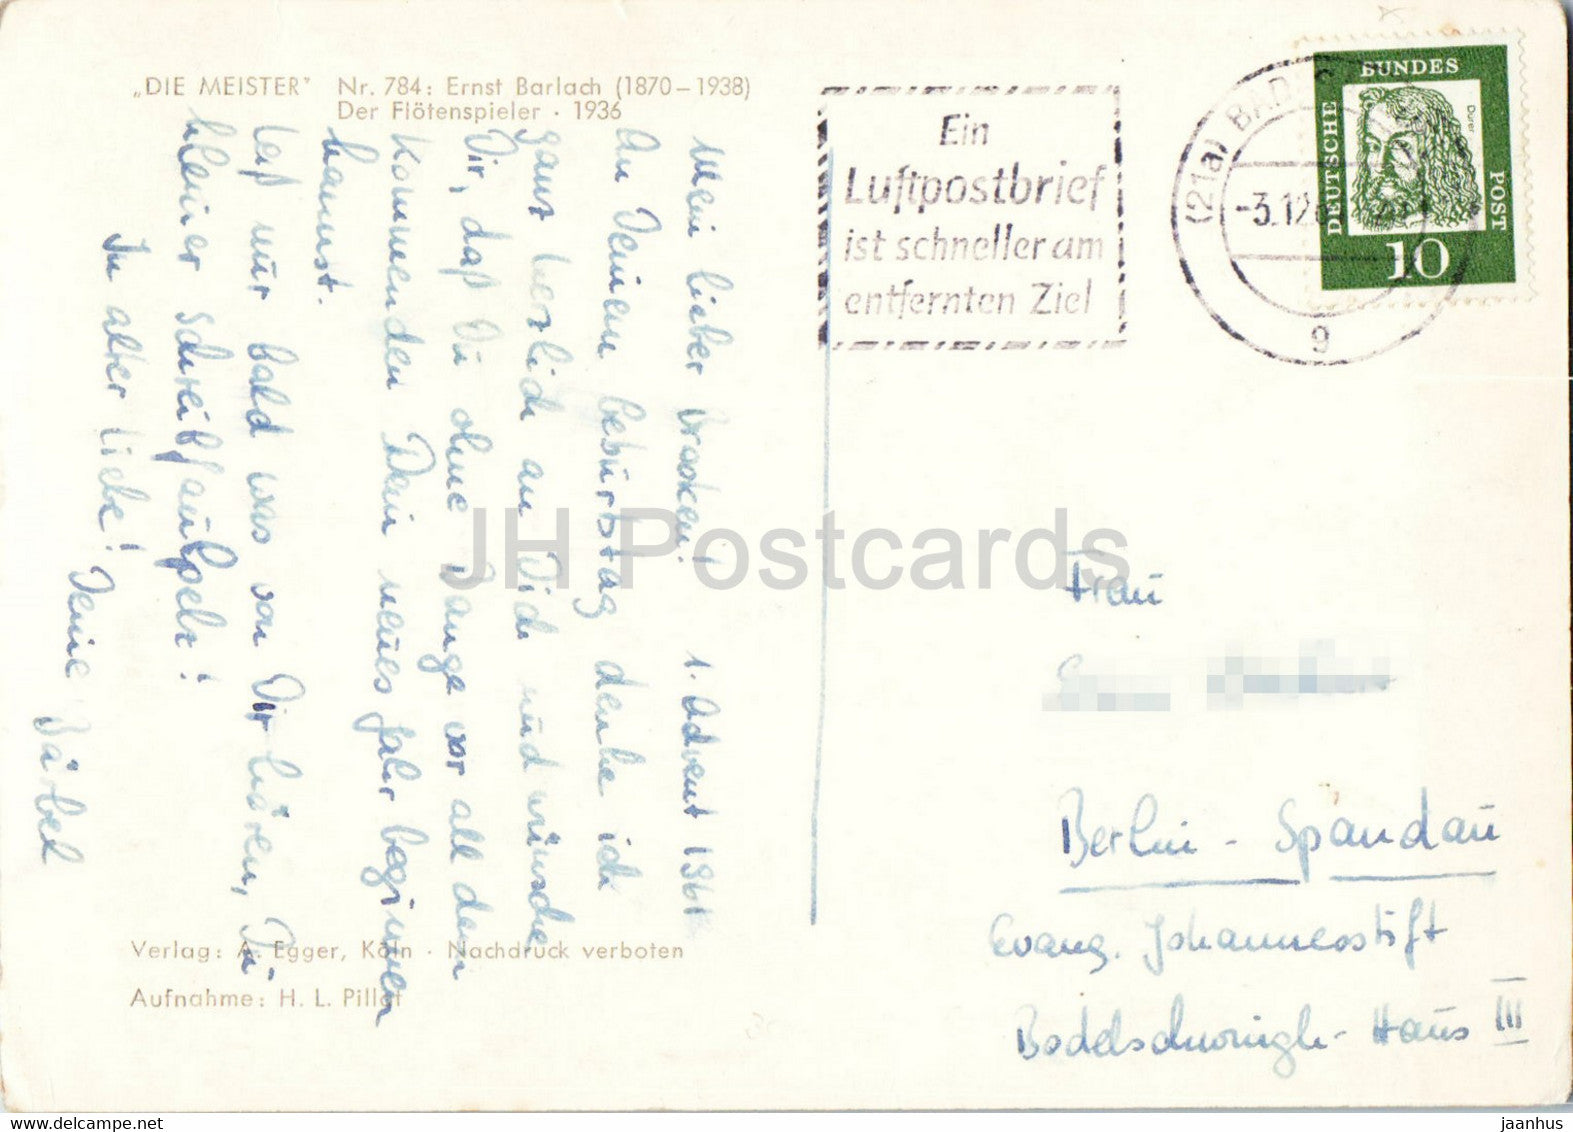 „DIE MEISTER" Nr. 784: Ernst Barlach (1870–1938)
Der Flötenspieler · 1936
1. Advent 1961
Mein lieber
An Deinem Geburtstag denke ich
ganz herzlich an Dich und wünsche
Dir, daß Du ohne Bange vor all dem
Kommenden Dein neues Jahr beginnen
kannst.
Laß nur bald was von Dir hören, Du
kleiner Schreibfaulpelz!
In alter Liebe! Deine Bärbel
Verlag: A. Egger, Köln · Nachdruck verboten
Aufnahme: H. L. Pillat
Ein
Luftpostbrief
ist schneller am
entfernten Ziel
(21a) BAD
-3.12
g
DEUTSCHE
BUNDES
POST
Dürer
10
Frau
Berlin - Spandau
Evang. Johannesstift
Bodelschwingh-Haus III
JH Postcards
www.delcampe.net
jaanhus